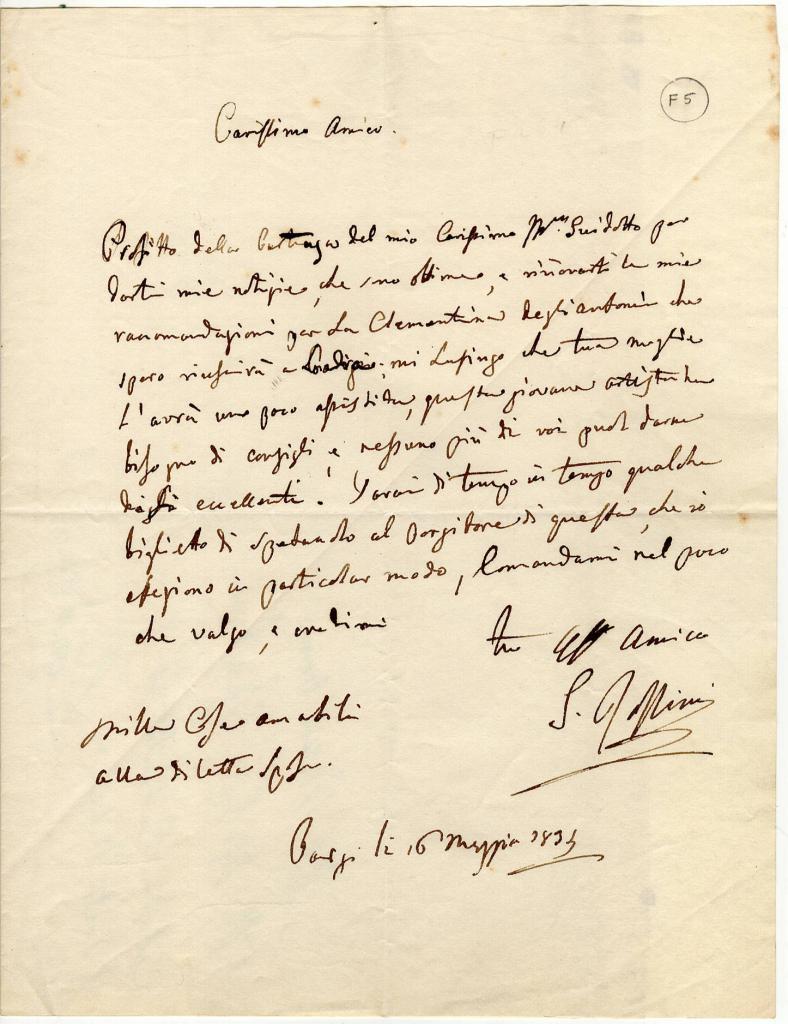 F5
Carissimo Amico.
Profitto della del mio Carissimo Guidotto per
darti mie notizie, che sono ottime, e rinovarti le mie
raccomandazioni per la Clementina degli antoni che
spero riuscirà a mi lusingo che tua moglie
l'avrà un poco assistita, questa giovane artista ha
bisogno di consigli, e nessuno più di voi puol darne
degli eccellenti. Darai di tempo in tempo qualche
biglietto di al porgitore di questa, che io
afeziono in particolar modo, Comandami nel poco
che valgo, e credimi
tuo Aff Amico
G. Rossini
Mille Cose amabili
alla diletta Sposa.
Parigi li 16 Maggio 1834